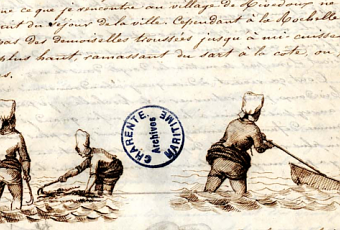 ce que j'rencontre au village de Rivedoux ne
séjour de la ville. Cependant à la Rochelle
pas des demoiselles troussées jusqu'à mi cuisses
plus haut, ramassant du sart à la côte, ou
CHARENTE-MARITIME
Archives